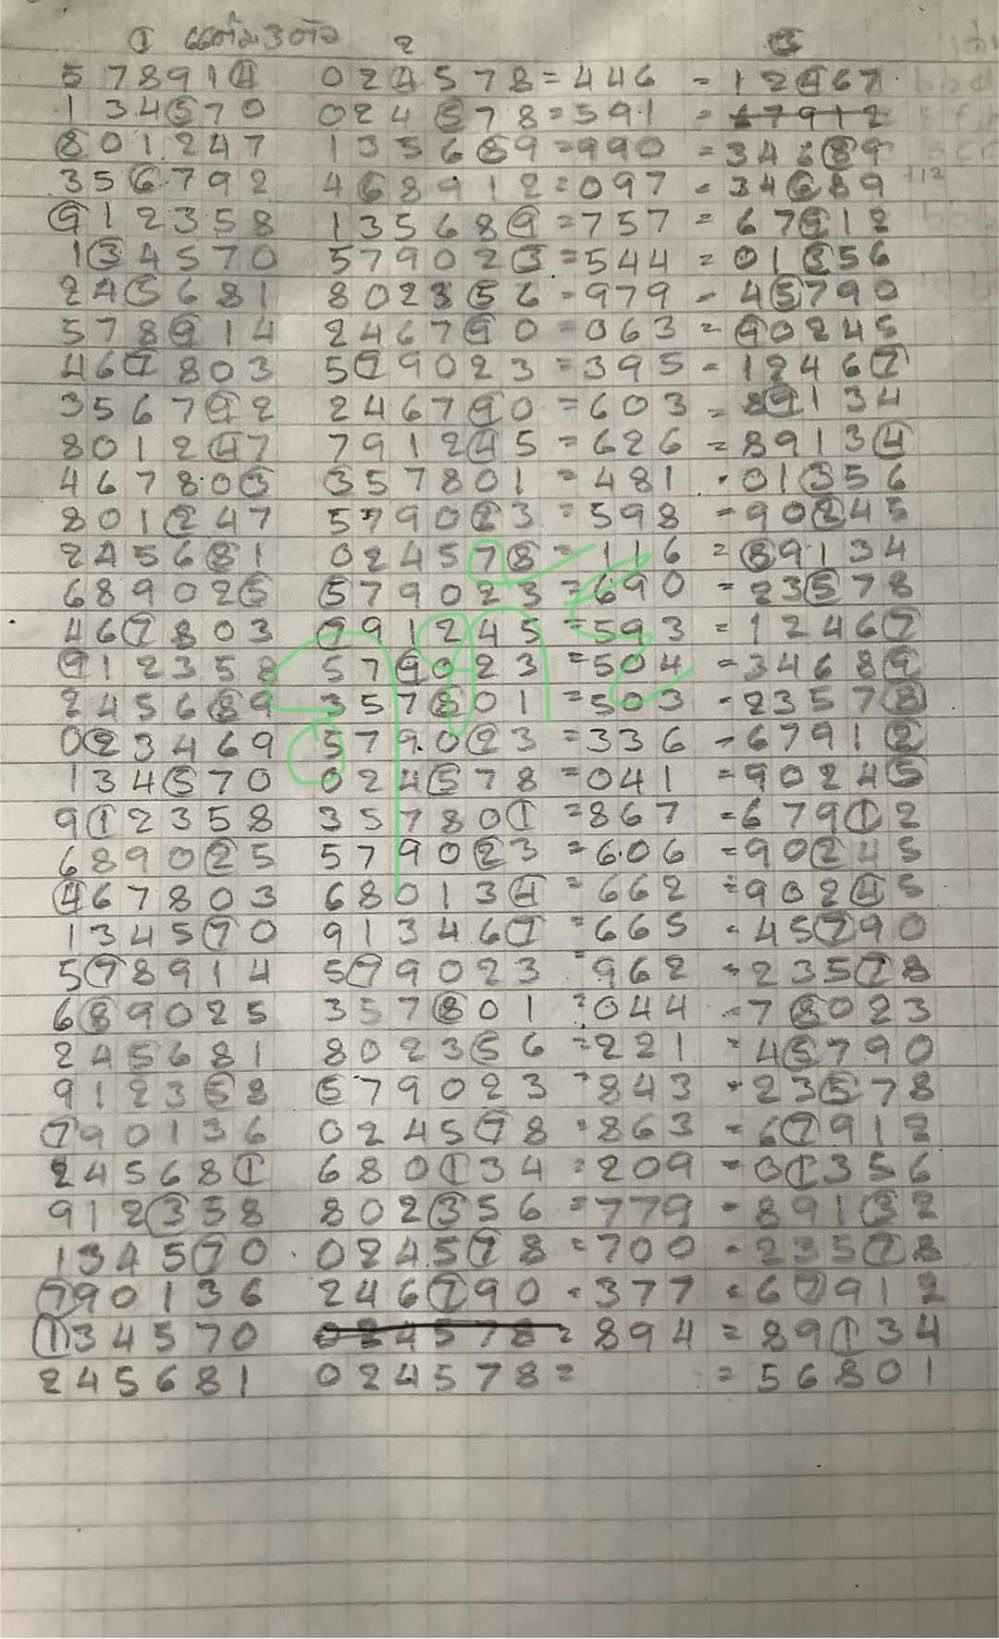 ① แต้ม3ตัว 2 3
578914 024578=446 =12467
134570 024578=591 =67912
801247 135689=990 =34689
356792 468912=097 =34689 +12
912358 135689=757 =67912
134570 579023=544 =01356
245681 802356=979 =45790
578914 246790=063 =90245
467803 579023=395 =12467
356792 246790=603 =89134
801247 791245=626 =89134
467803 357801=481 =01356
801247 579023=598 =90245
245681 024578=116 =89134
689025 579023=690 =23578
467803 791245=593 =12467
912358 579023=504 =34689
245689 357801=503 =23578
023469 579023=336 =67912
134570 024578=041 =90245
912358 357801=867 =67912
689025 579023=606 =90245
467803 680134=662 =90245
134570 913467=665 =45790
578914 579023=962 =23578
689025 357801=044 =78023
245681 802356=221 =45790
912358 579023=843 =23578
790136 024578=863 =67912
245681 680134=209 =01356
912358 802356=779 =89132
134570 024578=700 =23578
790136 246790=377 =67912
134570 024578=894 =89134
245681 024578= =56801